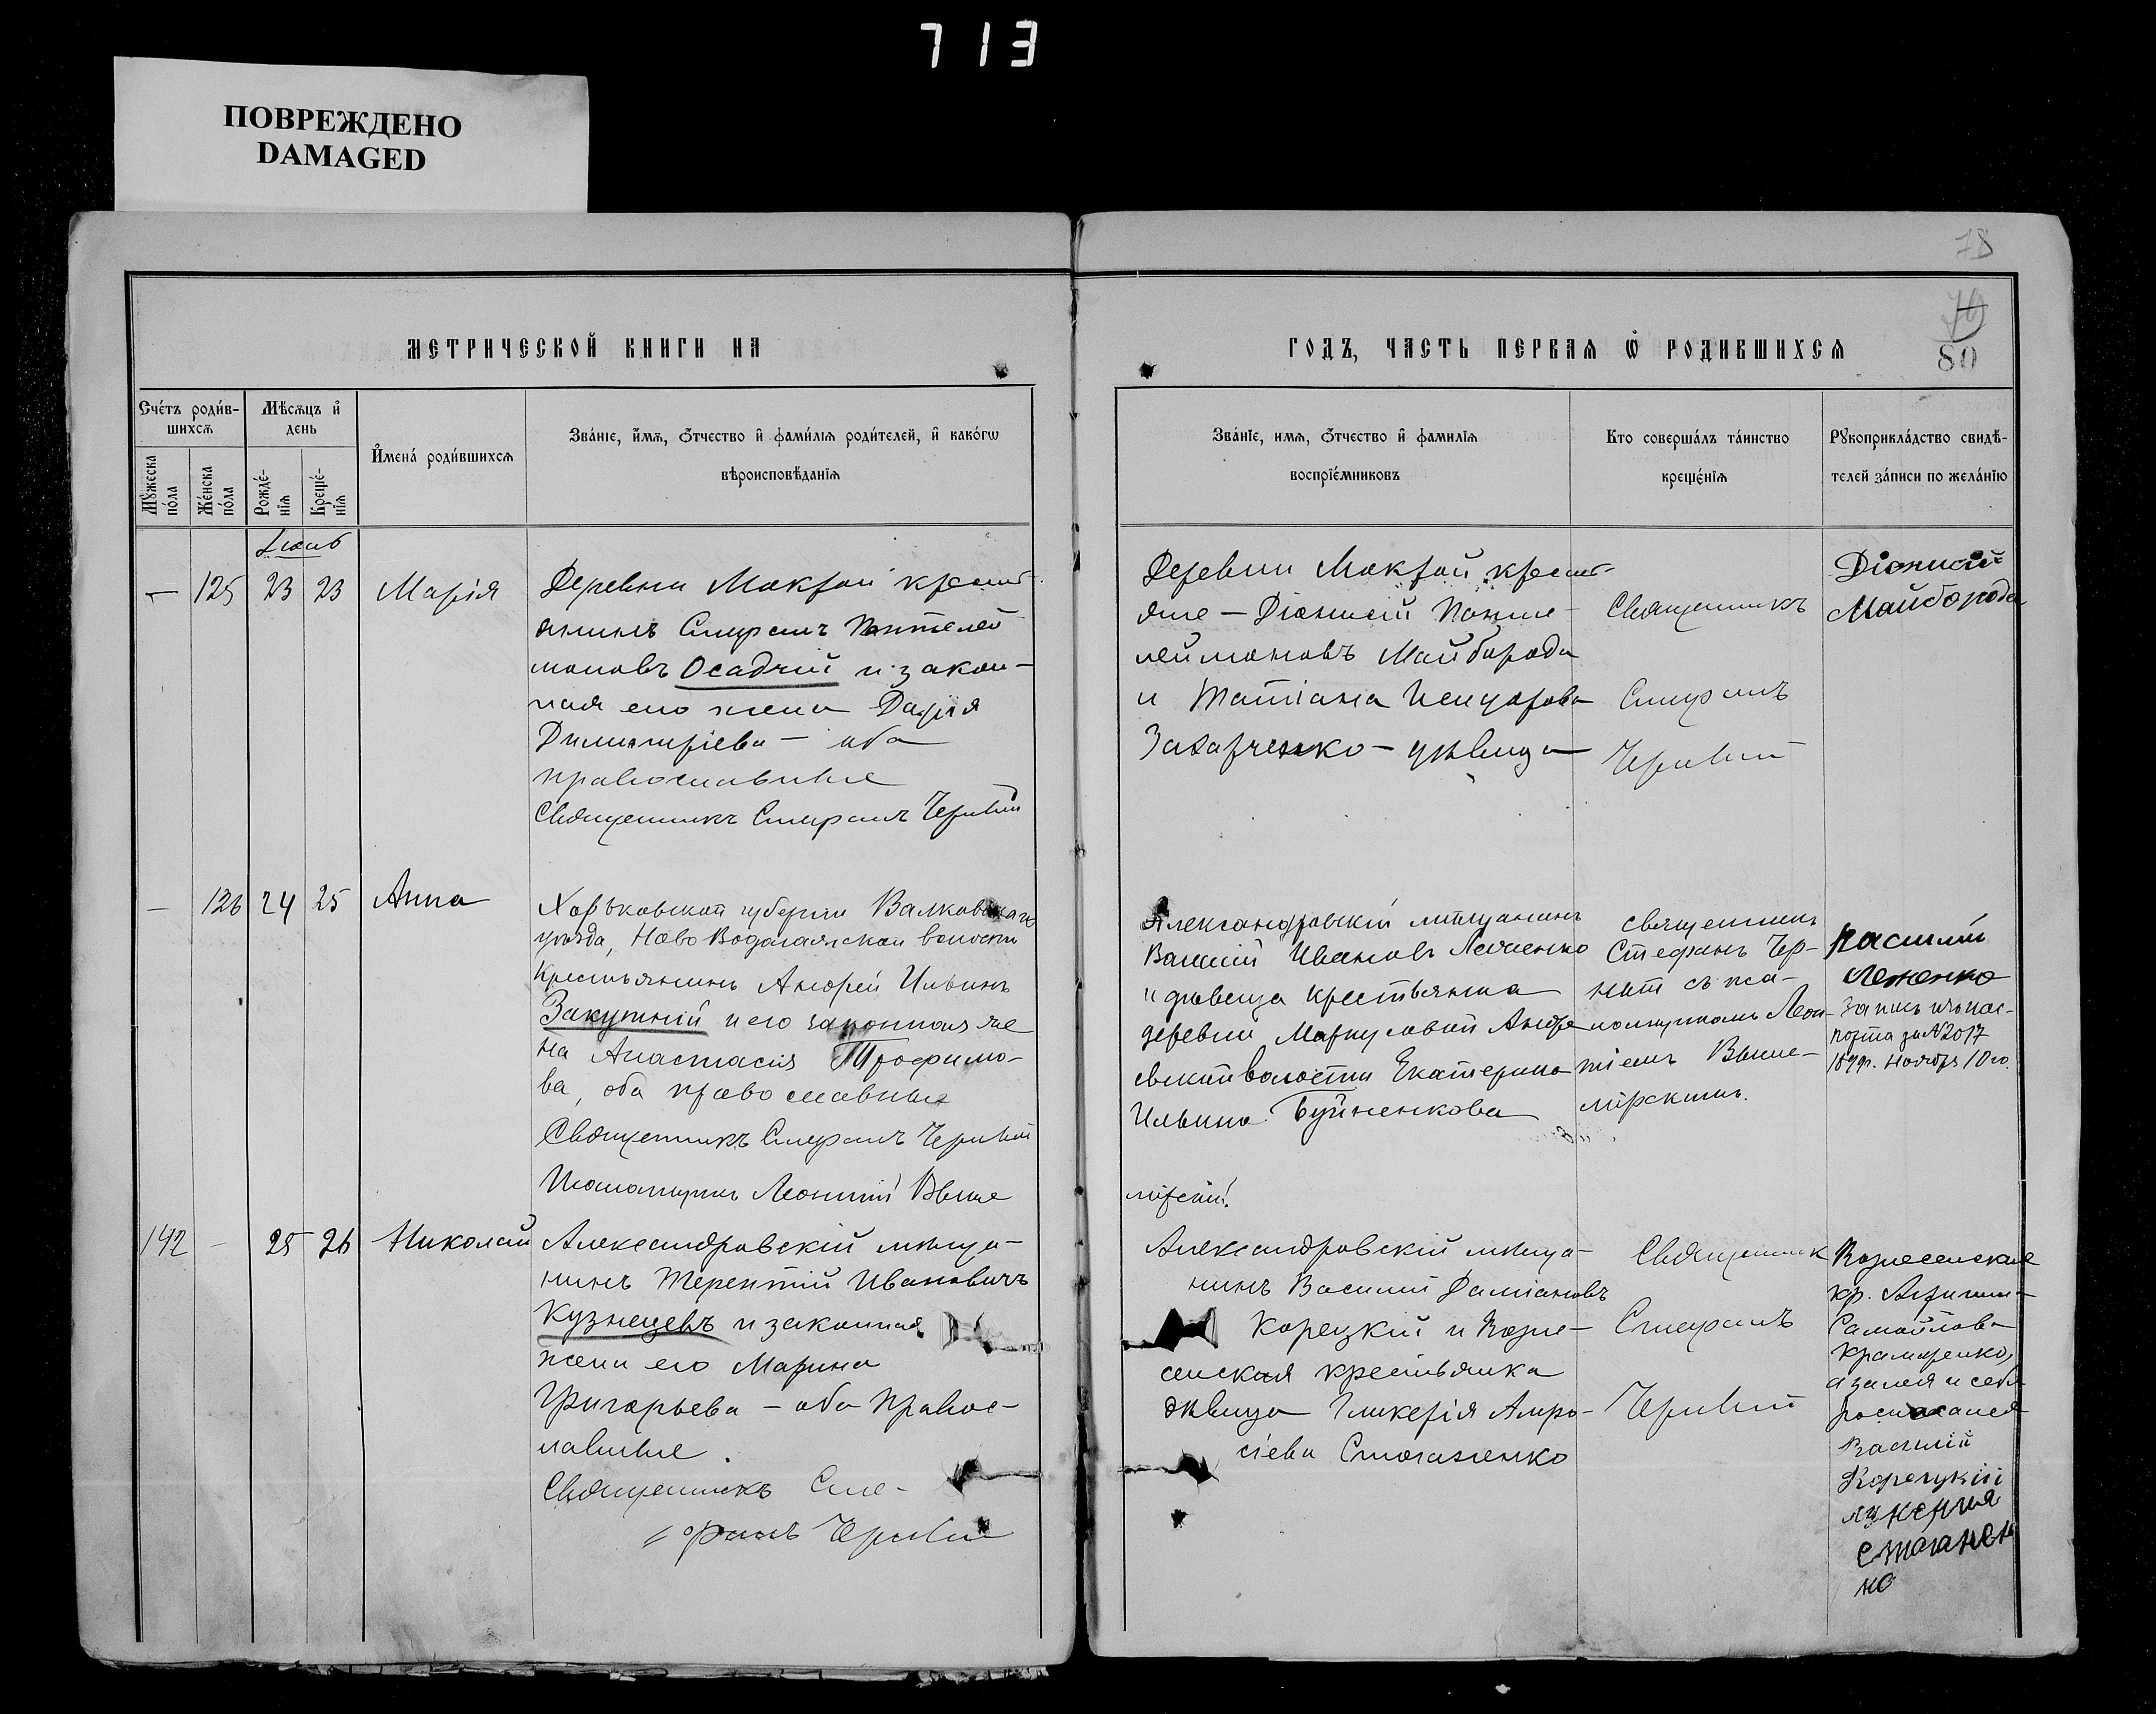 713
ПОВРЕЖДЕНО
DAMAGED
78
80
МЕТРИЧЕСКОЙ КНИГИ НА
ГОДЪ, ЧАСТЬ ПЕРВАЯ Ѡ РОДИВШИХСЯ
Счётъ родив-
шихся
Мѣсяцъ и
день
Имена родившихся
Званіе, имя, отчество и фамилія родителей, и какогѡ
вѣроисповѣданія
Мужеска пола
Женска пола
Рожде-
нія
Креще-
нія
Званіе, имя, отчество и фамилія
воспріемниковъ
Кто совершалъ таинство
крещенія
Рукоприкладство свидѣ-
телей записи по желанію
— 125 23 23 Марія
Деревни Мокрой кресть-
янинъ Стефанъ Пантелей
моновъ Осадчій и закон-
ная его жена Дарія
Димитріева — оба
православные
Священникъ Стефанъ
Деревни Мокрой кресть-
яне — Діонисій Панте-
леймоновъ Майборода
и Татіана Исидорова
Захарченко — дѣвица
Священникъ
Стефанъ
Діонисій
Майборода
— 126 24 25 Анна
Харьковской губерніи Валковскаго
уѣзда, Ново Водолажской волости
крестьянинъ Андрей Ильинъ
Закутній и его законная же
на Анастасія Трофимо-
ва, оба православные
Священникъ Стефанъ
Псаломщикъ Леонтій Выше
мірскій.
Александровскій мѣщанинъ
Василій Ивановъ
и дѣвица крестьянка
деревни Маркусовой Андре
евской волости Екатерина
Ильина
Священникъ
Стефанъ Чер-
съ пса-
ломщикомъ Леон-
тіемъ Выше-
мірскимъ.
Василій
Запись изъ пас-
порта за № 2017
Ноября 10 го.
142 — 25 26 Николай
Александровскій мѣща-
нинъ Терентій Ивановичъ
Кузнецевъ и законная
жена его Марина
Григорьева — оба правос-
лавные.
Священникъ Сте-
фанъ
Александровскій мѣща-
нинъ Василій Даміановъ
Корецкій и Возне-
сенская крестьянка
дѣвица Гликерія Амвро-
сіева Стоганенко
Священник
Стефанъ
Вознесенские
кр.
Самойлова
Крамаренко,
а за нея и себя
росписался
Василій
Корецкій
Стоганен
ко